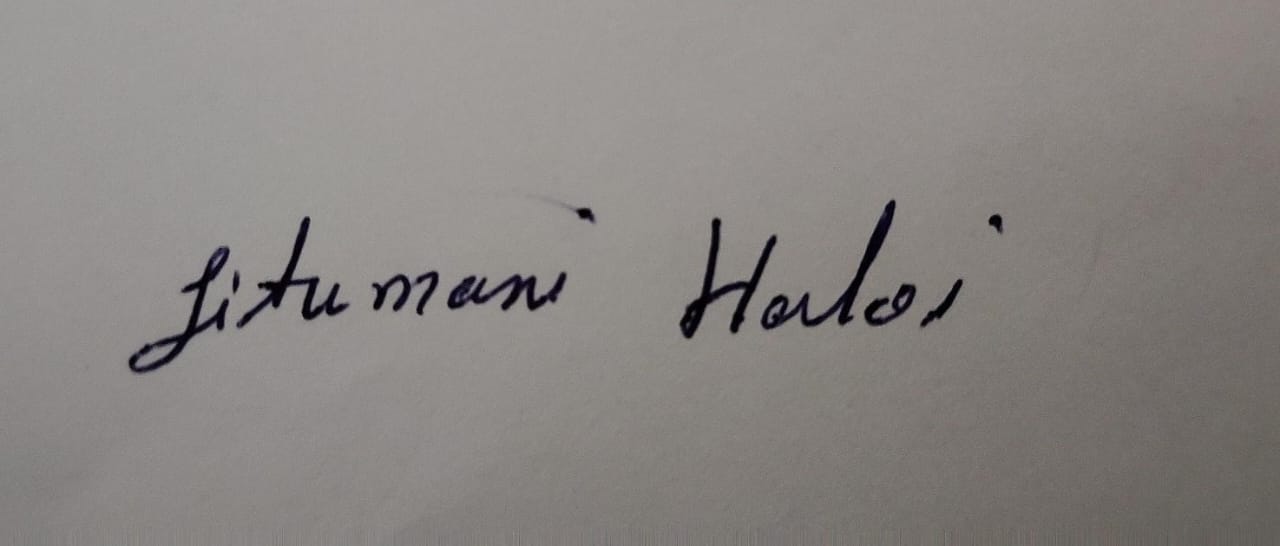 Jitumani Haloi